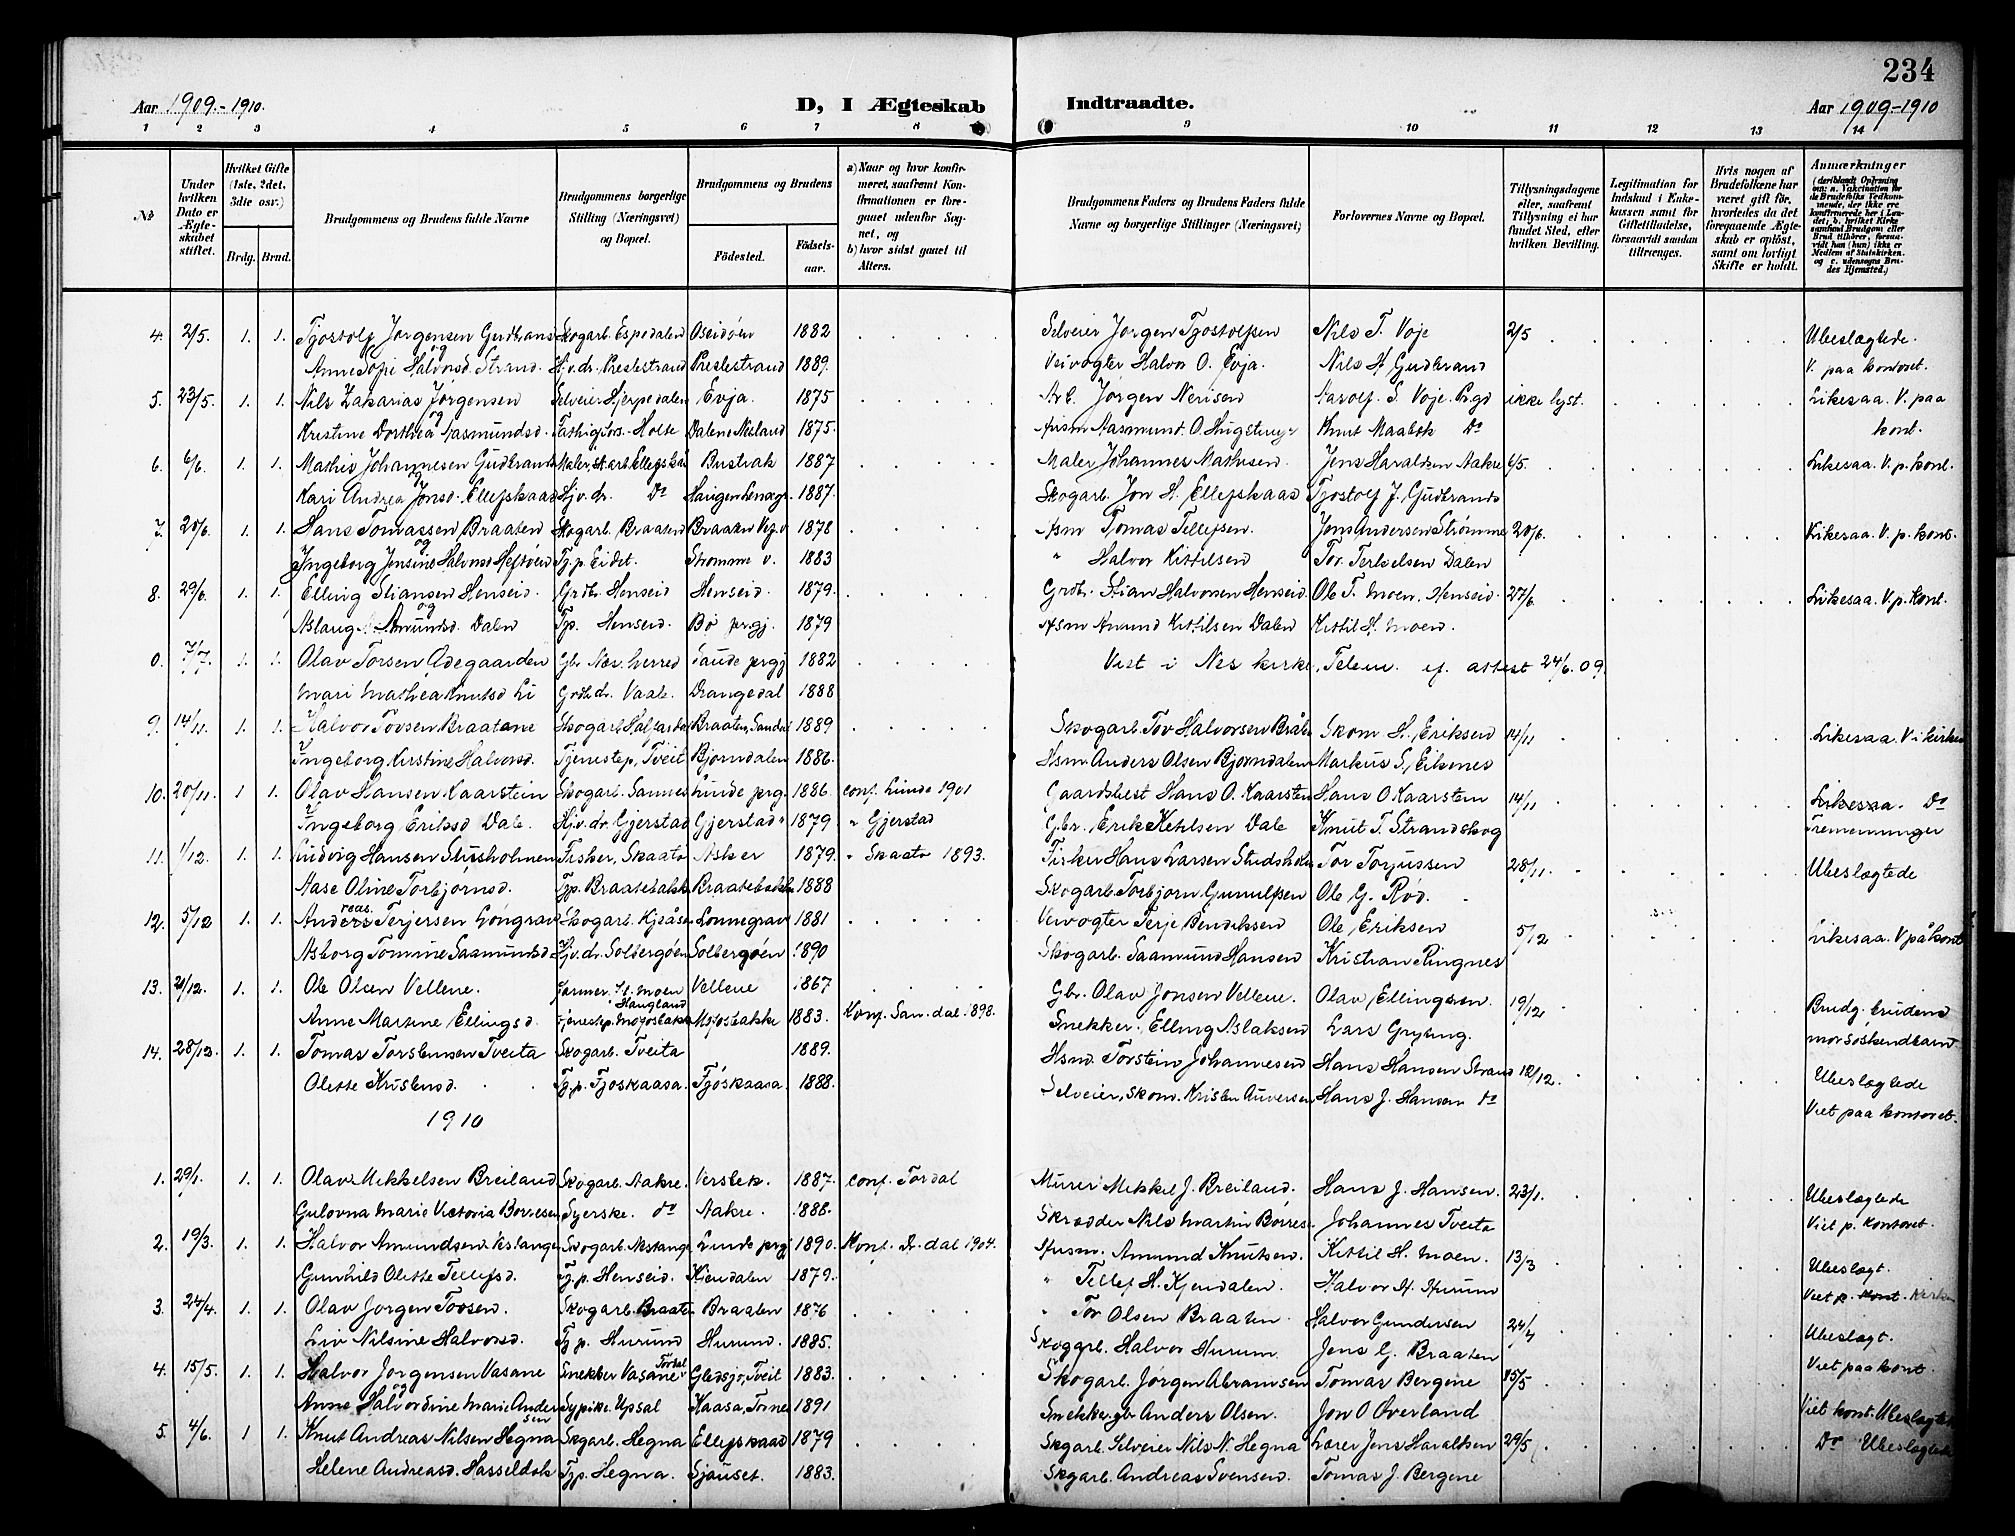 234
Aar 1909.-1910. D, I Ægteskab Indtraadte. Aar 1909.-1910
1 2 3 4 5 6 7 8 9 10 11 12 13 14
No
Under hvilken Dato er Ægteskabet stiftet.
Hvilket Gifte (1ste, 2det, 3die osv.)
Brdg. Brud.
Brudgommens og Brudens fulde Navne
Brudgommens borgerlige Stilling (Næringsvei) og Bopæl.
Brudgommens og Brudens
Fødested. Fødselsaar.
a) Naar og hvor konfirmeret, saafremt Konfirmationen er foregaaet udenfor Sognet, og
b) hvor sidst gaaet til Alters.
Brudgommens Faders og Brudens Faders fulde Navne og borgerlige Stillinger (Næringsvei)
Forlovernes Navne og Bopæl.
Tillysningsdagene eller, saafremt Tillysning ei har fundet Sted, efter hvilken Bevilling.
Legitimation for Indskud i Enkekassen samt for Giftetilladelse, forsaavidt saadan tiltrænges.
Hvis nogen af Brudefolkene har været gift før, hvorledes da det foregaaende Ægteskab er opløst, samt om lovligt Skifte er holdt.
Anmærkninger
4. 2/5 1. 1. Tjostolf Jørgensen Gudbrans Skogarb. Espedalen Oseidøen 1882 Selveier Jørgen Tjostolfsen Nils T. Voje 2/5 Ubeslægtede.
og
Anne Sofie Halvorsd. Strand. Hj.v.dr. Preslestrand Preslestrand 1889. Veivogter Halvor O. Evja. Nils H. Gudbrand V. paa kontoret.
5. 23/5. 1. 1. Nils Zakarias Jørgensen Selveier Hjerpedalen Evja. 1875 Arb. Jørgen Nerisen Aasolf. S. Voje. Prgd ikke lyst. Likesaa. V. paa
og
Kristine Dorthea Aasmundsd. Holte 1875. Aasmund. O. Knut Do kont.
6. 6/6. 1. 1. Mathis Johannesen Gudbrands Bustrak 1887 Maler Johannes Mathisen. Jens Haraldsen Aakre 6/5. Likesaa. V. p. kont.
og
Kari Andrea Jonsd. Ellefskaas Hj.v.dr. Do 1887. Skogarb. Jon H. Ellefskaas Tjostolf J. Gudbrands
7. 20/6. 1. 1. Hans Tomassen Braaten Skogarb. Braaten Braaten 1878 Tomas Tellefsen. Jens Andersen Strømme 20/6. Likesaa. V. p. kont.
og
Ingeborg Jensine Halvorsd Heftøen Tj.p. Eidet. Strømme v. 1883 " Halvor Kittilsen Tor. Terkelsen Dalen
8. 29/6. 1. 1. Elling Stiansen Henseid. Grdbr. Henseid Henseid. 1879. Grdbr. Stian Halvorsen Henseid. Ole T. Moen, Henseid. 27/6. Likesaa. V. p. kont.
og
Aslaug Amundsd. Dalen Tjp. Henseid. Bø prgj. 1879 Amund Kittilsen Dalen Kittil H. Moen.
0. 7/7. 1. 1. Olav Torsen Ødegaarden Gbr. Næs. herred Saude prgj 1882 Viet i Nes kirke, Telem. ef. attest 24/6. 09.
Mari Mathea Knutsd Li Grdb. dr. Vaale. Drangedal 1888
9. 14/11. 1. 1. Halvor Tovsen Braatane Skogarb. Braaten, 1889 Skogarb. Tov Halvorsen Skom H. Eriksen 14/11 Likesaa. V i kirken
Ingeborg Kirstine Halvorsd. Tjenestep. Tveit Bjørndalen 1886. Hsm. Anders Olsen Bjørndalen Markus S. Eikenes
10. 20/11. 1 1. Olav Hansen Kaarstein Skogarb. Sannes Lunde prg. 1886 conf. Lunde 1901 Gaardsbest Hans O. Kaarsten Hans O Kaarstein 14/11 Likesaa. Do
Ingeborg Eriksd Dale. Hj.v.dr. Gjerstad Gjerstad 1879. " Gjerstad Gbr. Erik Ketilsen Dale Knut T. Strandskog Tremenninger
11. 1/12. 1. 1. Ludvig Hansen Stusholmen Fisker, Skaatø Asker 1879. " Skaatø 1893. Fisker Hans Larsen Tor Torjussen 28/11. Ubeslægtede
Aase Oline Torbjørnsd. Tjp. Braatebakk 1888 Skogarb. Torbjørn Gunulfsen Ole G. Rød.
12. 5/12 1. 1. Anders Terjersen Løngrav Skogarb. Kjsåsen Lonnegrav 1881 Veivogter Terje Bendiksen Ole Eriksen 5/12 Likesaa. V på kont
Asborg Tomine Saamundsd. Hj.v.dr. Solbergøen Solbergøen 1890 Skogarb. Saamund Hansen Kristian Ringnes
13. 21/12. 1. 1. Ole Olsen Vellene. Farmer. Vellene 1867 Gbr. Olav Jonsen Vellene. Olav Ellingsen. 19/12 Brudg. brudens
Anne Martine Ellingsd. 1883. Konf. San.dal 1898. Snekker. Elling Aslaksen Lars Gryting. morsøskendbarn
14. 28/12. 1. 1. Tomas Torstensen Tveita Skogarb. Tveita 1889. Hsm. Torstein Johannesen Hans Hansen Strand 12/12. Ubeslægtede
Olette Kristensd. Tj.p. Tjøskaasa. Tjøskaasa. 1888. Selveier, Skom. Kristen Auversen Hans J. Hansen do Viet paa kontoret.
1910
1. 29/1. 1. 1. Olav Mikkelsen Breiland Skogarb. Aakre. Verstek. 1887. conf. Tørdal Murer Mikkel J. Breiland. Hans J. Hansen. 23/1. Ubeslægtede
Gulovna Marie Victoria Borresen Syerske. do Aakre. 1886. Skrædder Nils Martin Børres. Johannes Tveita Viet p. kontoret.
2. 19/3. 1. 1. Halvor Amundsen Neslange Skogarb. Lunde prgj 1890. Konf. Dr.dal 1904. Husm. Amund Knutsen. Kittil H. Moen. 13/3 Ubeslægt.
Gunhild Olette Tellefsd. Tj.p. Henseid. Kjendalen 1879. " Tellef H. Kjendalen. Halvor H. Hurum Viet p. kont. Kirken
3. 24/4. 1. 1. Olav Jørgen Tovsen. Skogarb. Braaten Braaten 1876 " Tov Olsen Braaten. Halvor Gundersen 24/4 Ubeslægt.
Liv Nilsine Halvorsd. Tj.p. Hurund Hurund. 1885. Skogarb. Halvor Hurum. Jens G. Braaten Viet paa kont.
4. 15/5. 1. 1. Halvor Jørgensen Vasane Snekker Vasane Tørdal Gledsjø, Tveit 1883. Skogarb. Jørgen Abramsen Tomas Bergene 15/5 Viet kont. Ubeslægtede
og
Anne Halvordine Marie Andersen Sypike. Upsal Kaasa, 1891 Snekker gb. Anders Olsen. Jon O Øverland
5. 4/6. 1 1. Knut Andreas Nilsen Hegna Skgarb. Hegna Ellefskaas 1879 Skgarb. Selveier Nils N. Hegna Lærer Jens Haraldsen 29/5 Do Ubeslægtede
Helene Andreasd. Hasseldok Tjp. Hegna. Sjauset. 1883. Skgarb. Andreas Svensen. Tomas J. Bergene